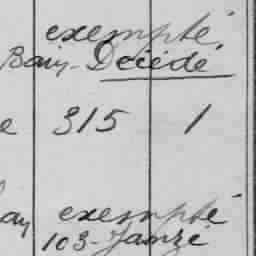 exempté
Décédé
e 315 1
ay exempté
103 - Janzé